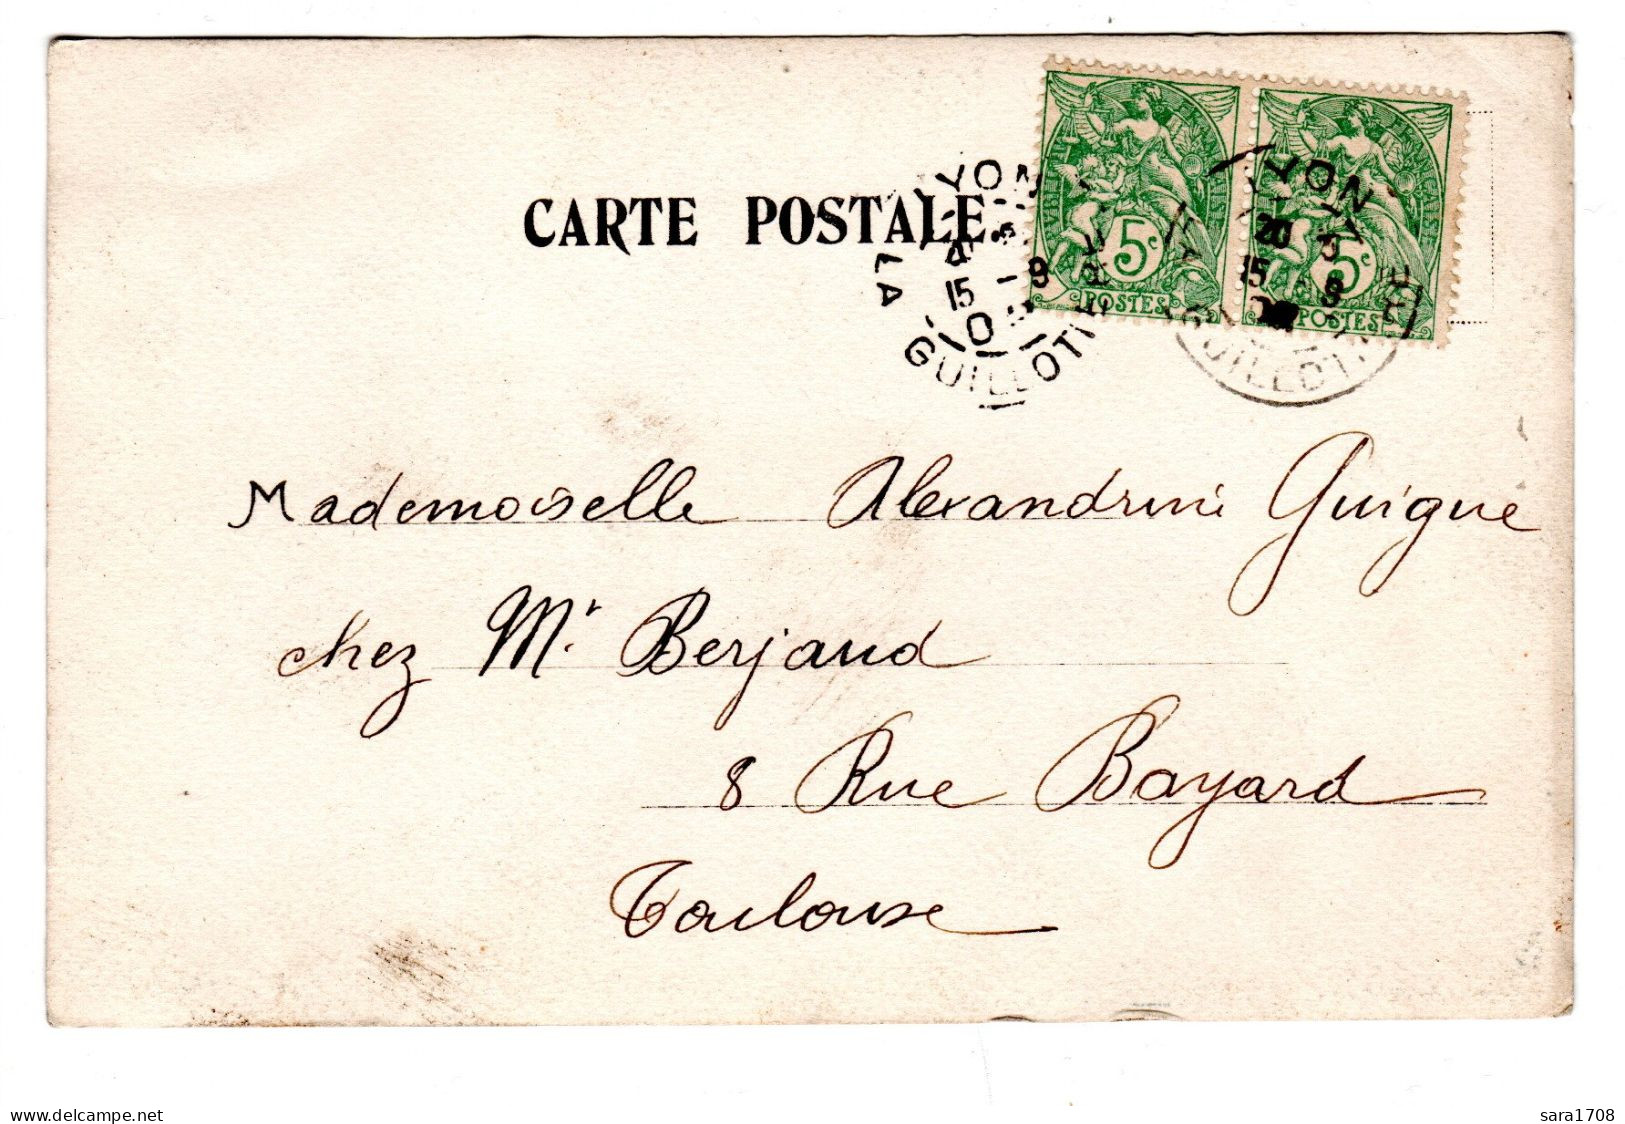 CARTE POSTALE
LYON
LA GUILLOTIÈRE
15 - 9
5c
POSTES
LYON
15 9
5c
POSTES
Mademoiselle Alexandrine Guigue
chez Mr. Berjaud
8 Rue Bayard
Toulouse
www.delcampe.net
sara1708